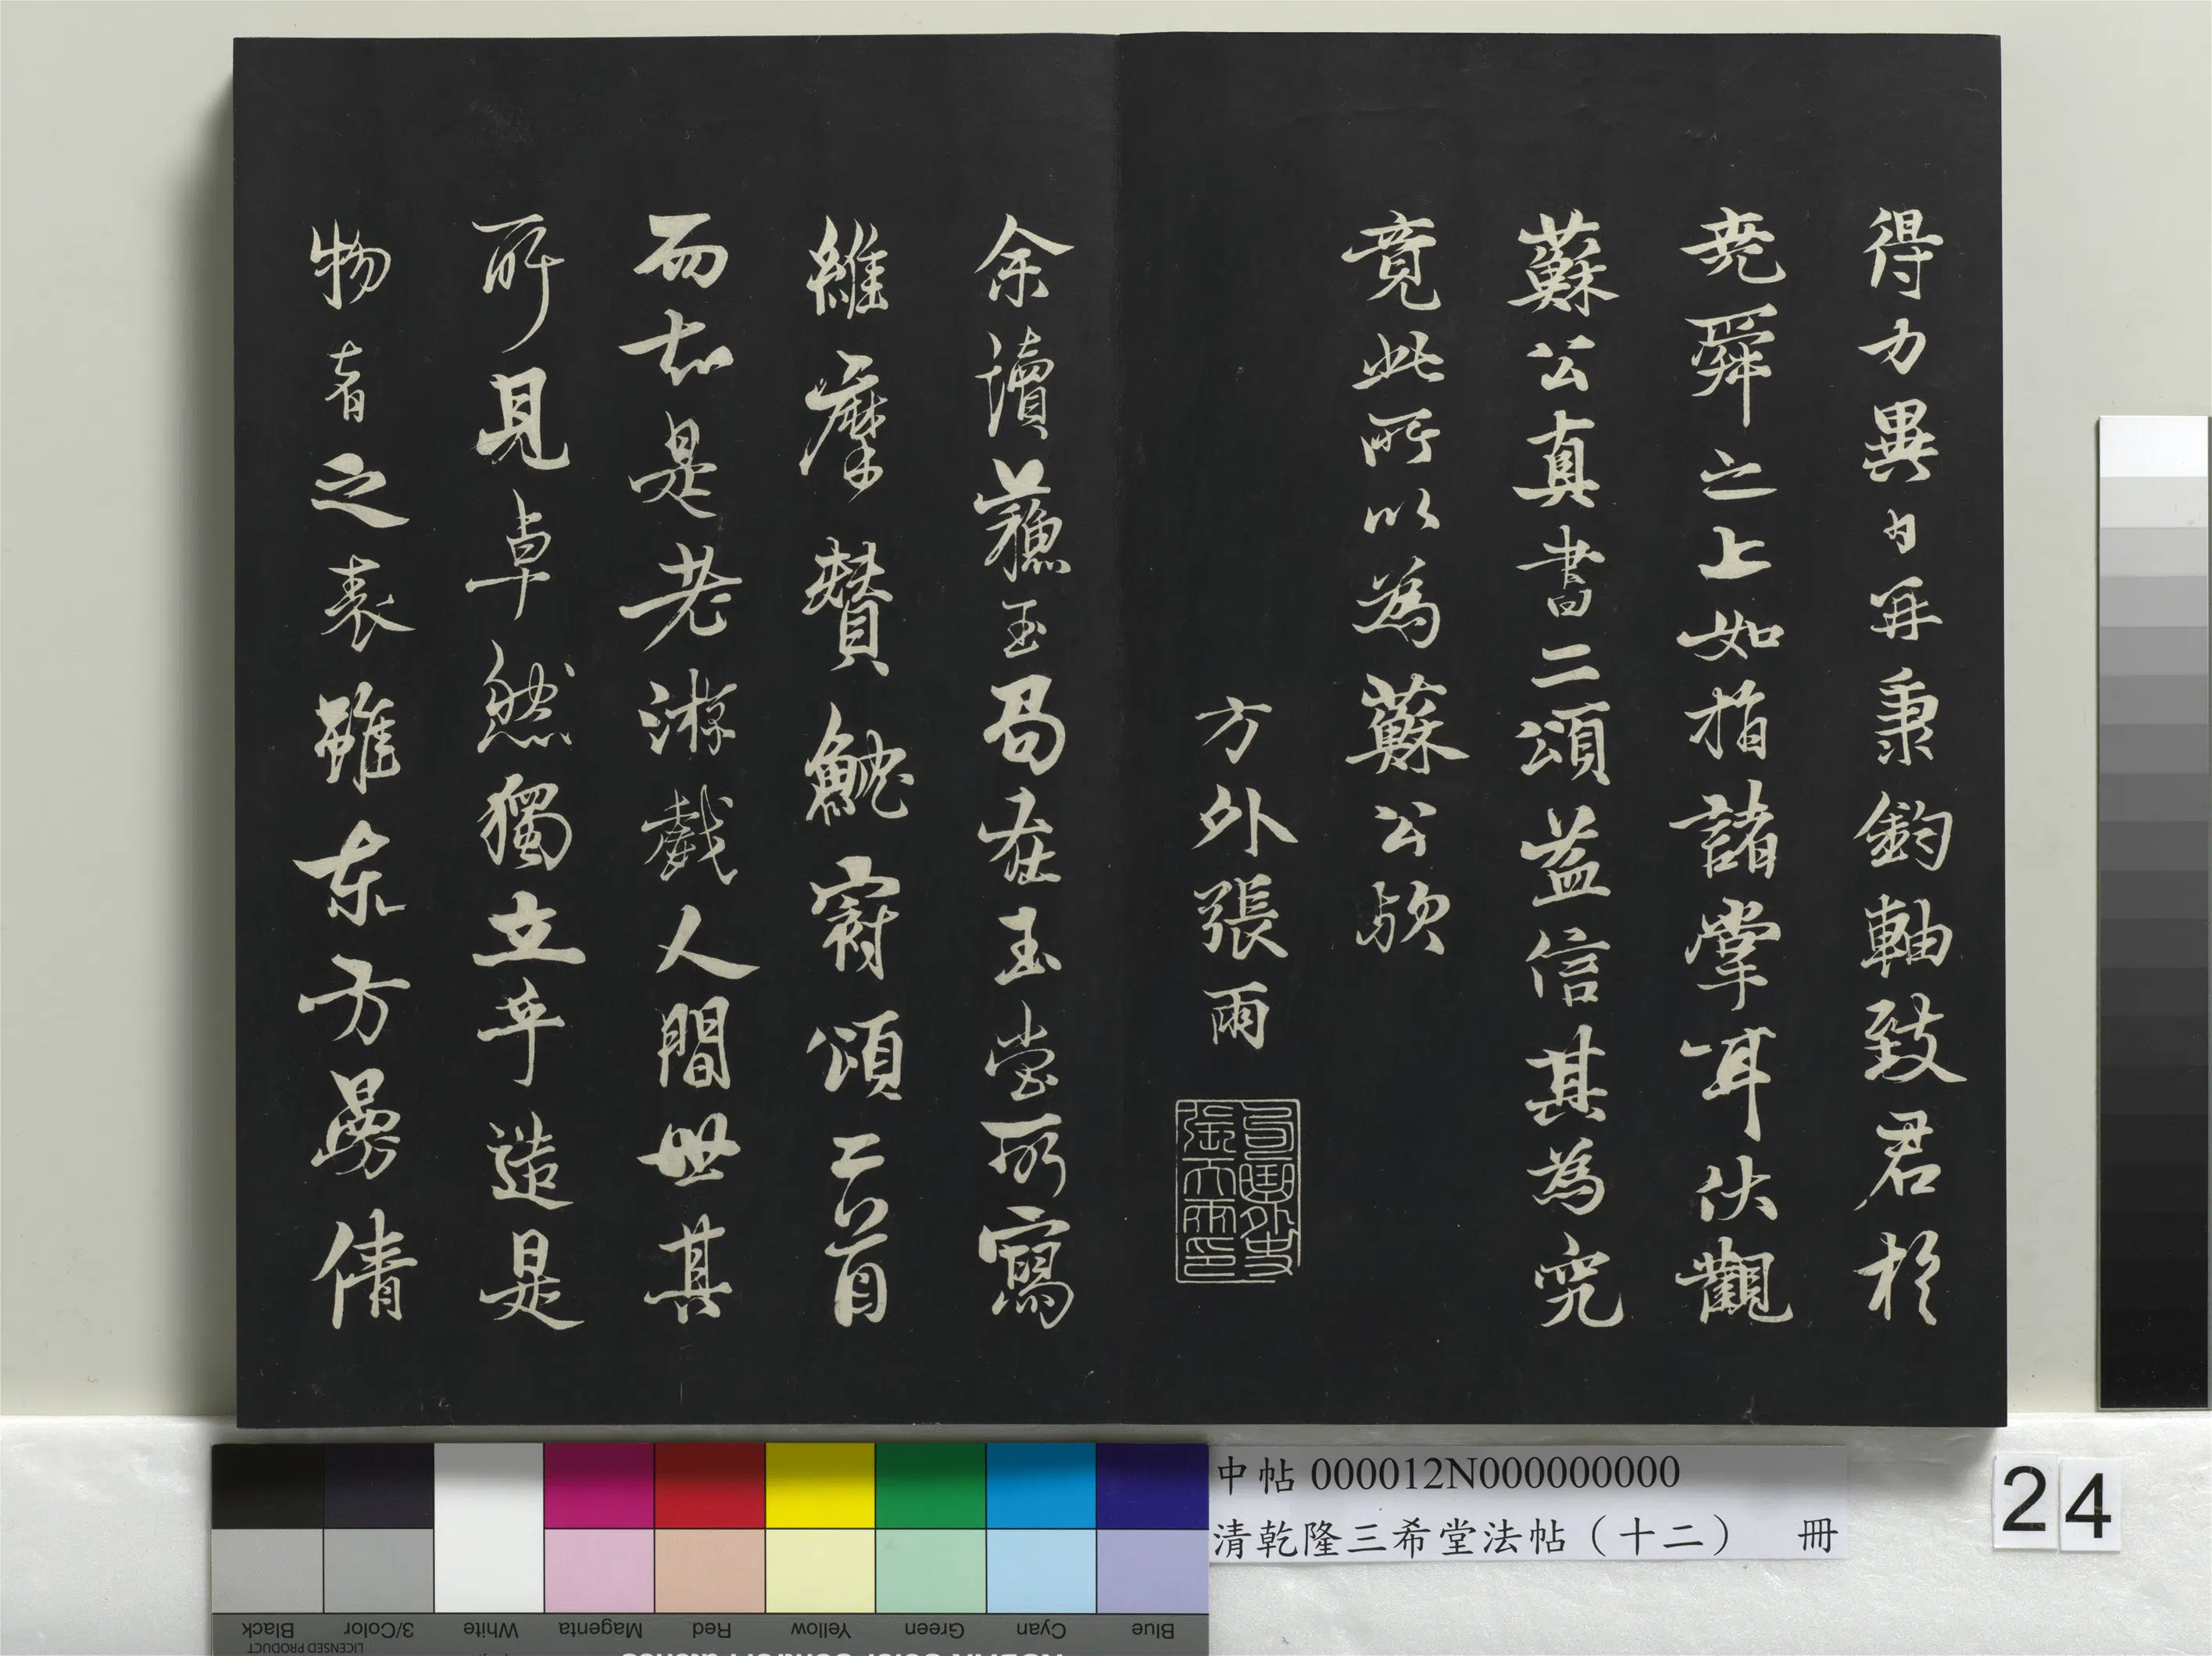 得力異日再秉鈞軸致君於
堯舜之上如指諸掌耳伏觀
蘇公真書二頌益信其為究
竟此所以為蘇公歟
方外張雨
句曲外史張天雨印
余讀蘓玉局在玉堂所寫
維摩贊魫冠頌二首
而知是老游戲人間世其
所見卓然獨立乎造是
物者之表雖東方曼倩
中帖 000012N000000000
清乾隆三希堂法帖（十二） 冊
24
Blue Cyan Green Yellow Red Magenta White 3/Color Black
LICENSED PRODUCT